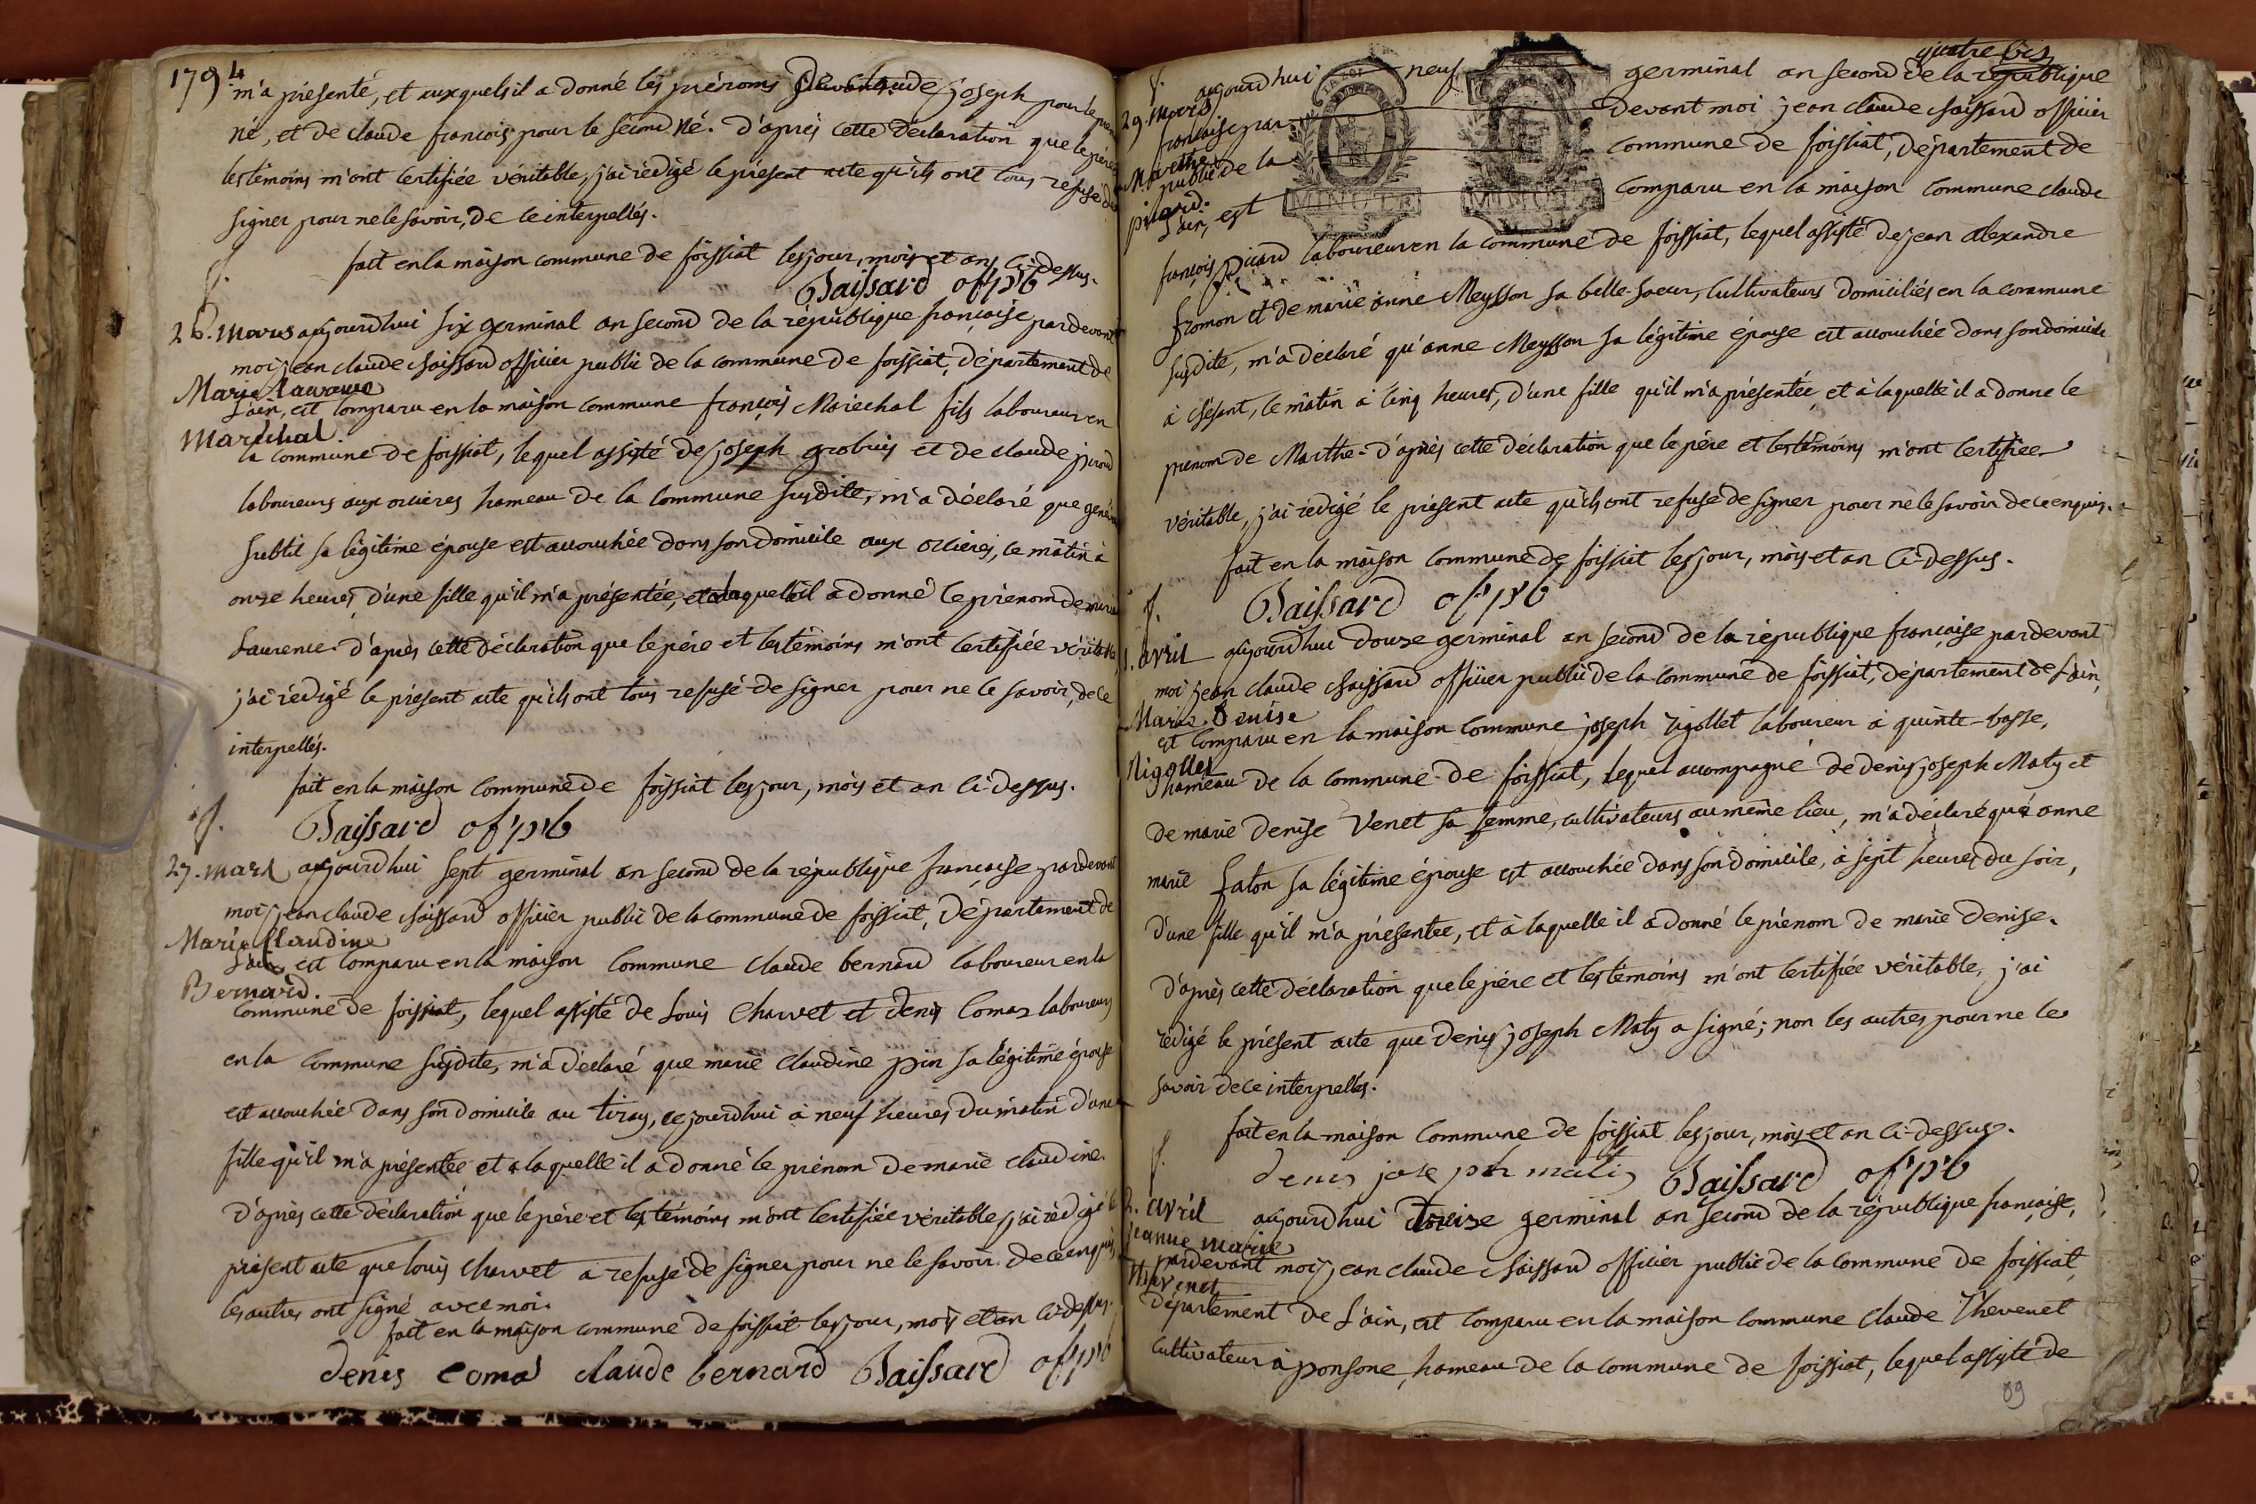 1794
m'a présenté, et auxquels il a donné les prénoms de claude joseph pour le
né, et de claude françois pour le second né. D'après cette déclaration que le père et
les témoins m'ont certifiée véritable, j'ai rédigé le présent acte qu'ils ont tous refusé de
signer pour ne le savoir, de ce interpellés.
fait en la maison commune de foissiat les jour, mois et an ci-dessus.
Chaissard of. pub
26. mars aujourd'hui six germinal an second de la république française pardevant
moi jean claude chaissard officier public de la commune de foissiat, département de
Marie Laurence
L'ain, est comparu en la maison commune françois Maréchal fils laboureur en
Maréchal
la commune de foissiat, lequel assisté de joseph et de claude
laboureurs aux orcières hameau de la commune susdite, m'a déclaré que
subtil sa légitime épouse est accouchée dans son domicile aux orcières, ce matin à
onze heures, d'une fille qu'il m'a présentée, et à laquelle il a donné le prénom de marie
Laurence. D'après cette déclaration que le père et les témoins m'ont certifiée véritable,
j'ai rédigé le présent acte qu'ils ont tous refusé de signer pour ne le savoir, de ce
interpellés.
fait en la maison commune de foissiat les jour, mois et an ci-dessus.
Chaissard of. pub
27. mars aujourd'hui sept germinal an second de la république française pardevant
moi jean claude chaissard officier public de la commune de foissiat, département de
Marie Claudine
L'ain, est comparu en la maison commune claude bernard laboureur en la
Bernard.
commune de foissiat, lequel assisté de Louis Charvet et Denis Comas laboureurs
en la commune susdite, m'a déclaré que marie claudine pin sa légitime épouse
est accouchée dans son domicile au tiray, ce jourd'hui à neuf heures du matin d'une
fille qu'il m'a présentée et à laquelle il a donné le prénom de marie claudine.
D'après cette déclaration que le père et les témoins m'ont certifiée véritable j'ai rédigé le
présent acte que Louis Charvet a refusé de signer pour ne le savoir de ce enquis,
les autres ont signé avec moi.
fait en la maison commune de foissiat les jour, mois et an ci-dessus.
denis coma claude bernard Chaissard of. pub
quatre bis
aujourd'hui neuf germinal an second de la république
29. mars
française par devant moi jean claude chaissard officier
Marthe
public de la commune de foissiat, département de
picard.
L'ain, est comparu en la maison commune claude
MINUTE MINUTE
françois picard laboureur en la commune de foissiat, lequel assisté de jean alexandre
fromon et de marie anne Meysson sa belle-soeur, cultivateurs domiciliés en la commune
susdite, m'a déclaré qu'anne Meysson sa légitime épouse est accouchée dans son domicile
à, ce matin à cinq heures, d'une fille qu'il m'a présentée et à laquelle il a donné le
prénom de Marthe. D'après cette déclaration que le père et les témoins m'ont certifiée
véritable, j'ai rédigé le présent acte qu'ils ont refusé de signer pour ne le savoir de ce enquis.
fait en la maison commune de foissiat les jour, mois et an ci-dessus.
Chaissard of. pub
1. avril aujourd'hui douze germinal an second de la république française pardevant
moi jean claude chaissard officier public de la commune de foissiat, département de L'ain,
Marie Denise
est comparu en la maison commune joseph rigollet laboureur à quinte-basse,
Rigollet
hameau de la commune de foissiat, lequel accompagné de denis joseph Maty et
de marie denise Venet sa femme, cultivateurs au même lieu, m'a déclaré que anne
marie falon sa légitime épouse est accouchée dans son domicile, à sept heures du soir,
d'une fille qu'il m'a présentée, et à laquelle il a donné le prénom de marie denise.
D'après cette déclaration que le père et les témoins m'ont certifiée véritable, j'ai
rédigé le présent acte que denis joseph Maty a signé; non les autres pour ne le
savoir de ce interpellés.
fait en la maison commune de foissiat les jour, mois et an ci-dessus.
denis jose ph mati Chaissard of. pub
2. avril aujourd'hui treize germinal an second de la république française,
jeanne marie
pardevant moi jean claude chaissard officier public de la commune de foissiat
thevenet
département de L'ain, est comparu en la maison commune claude Thevenet
cultivateur à ponsone, hameau de la commune de foissiat, lequel assisté de
89